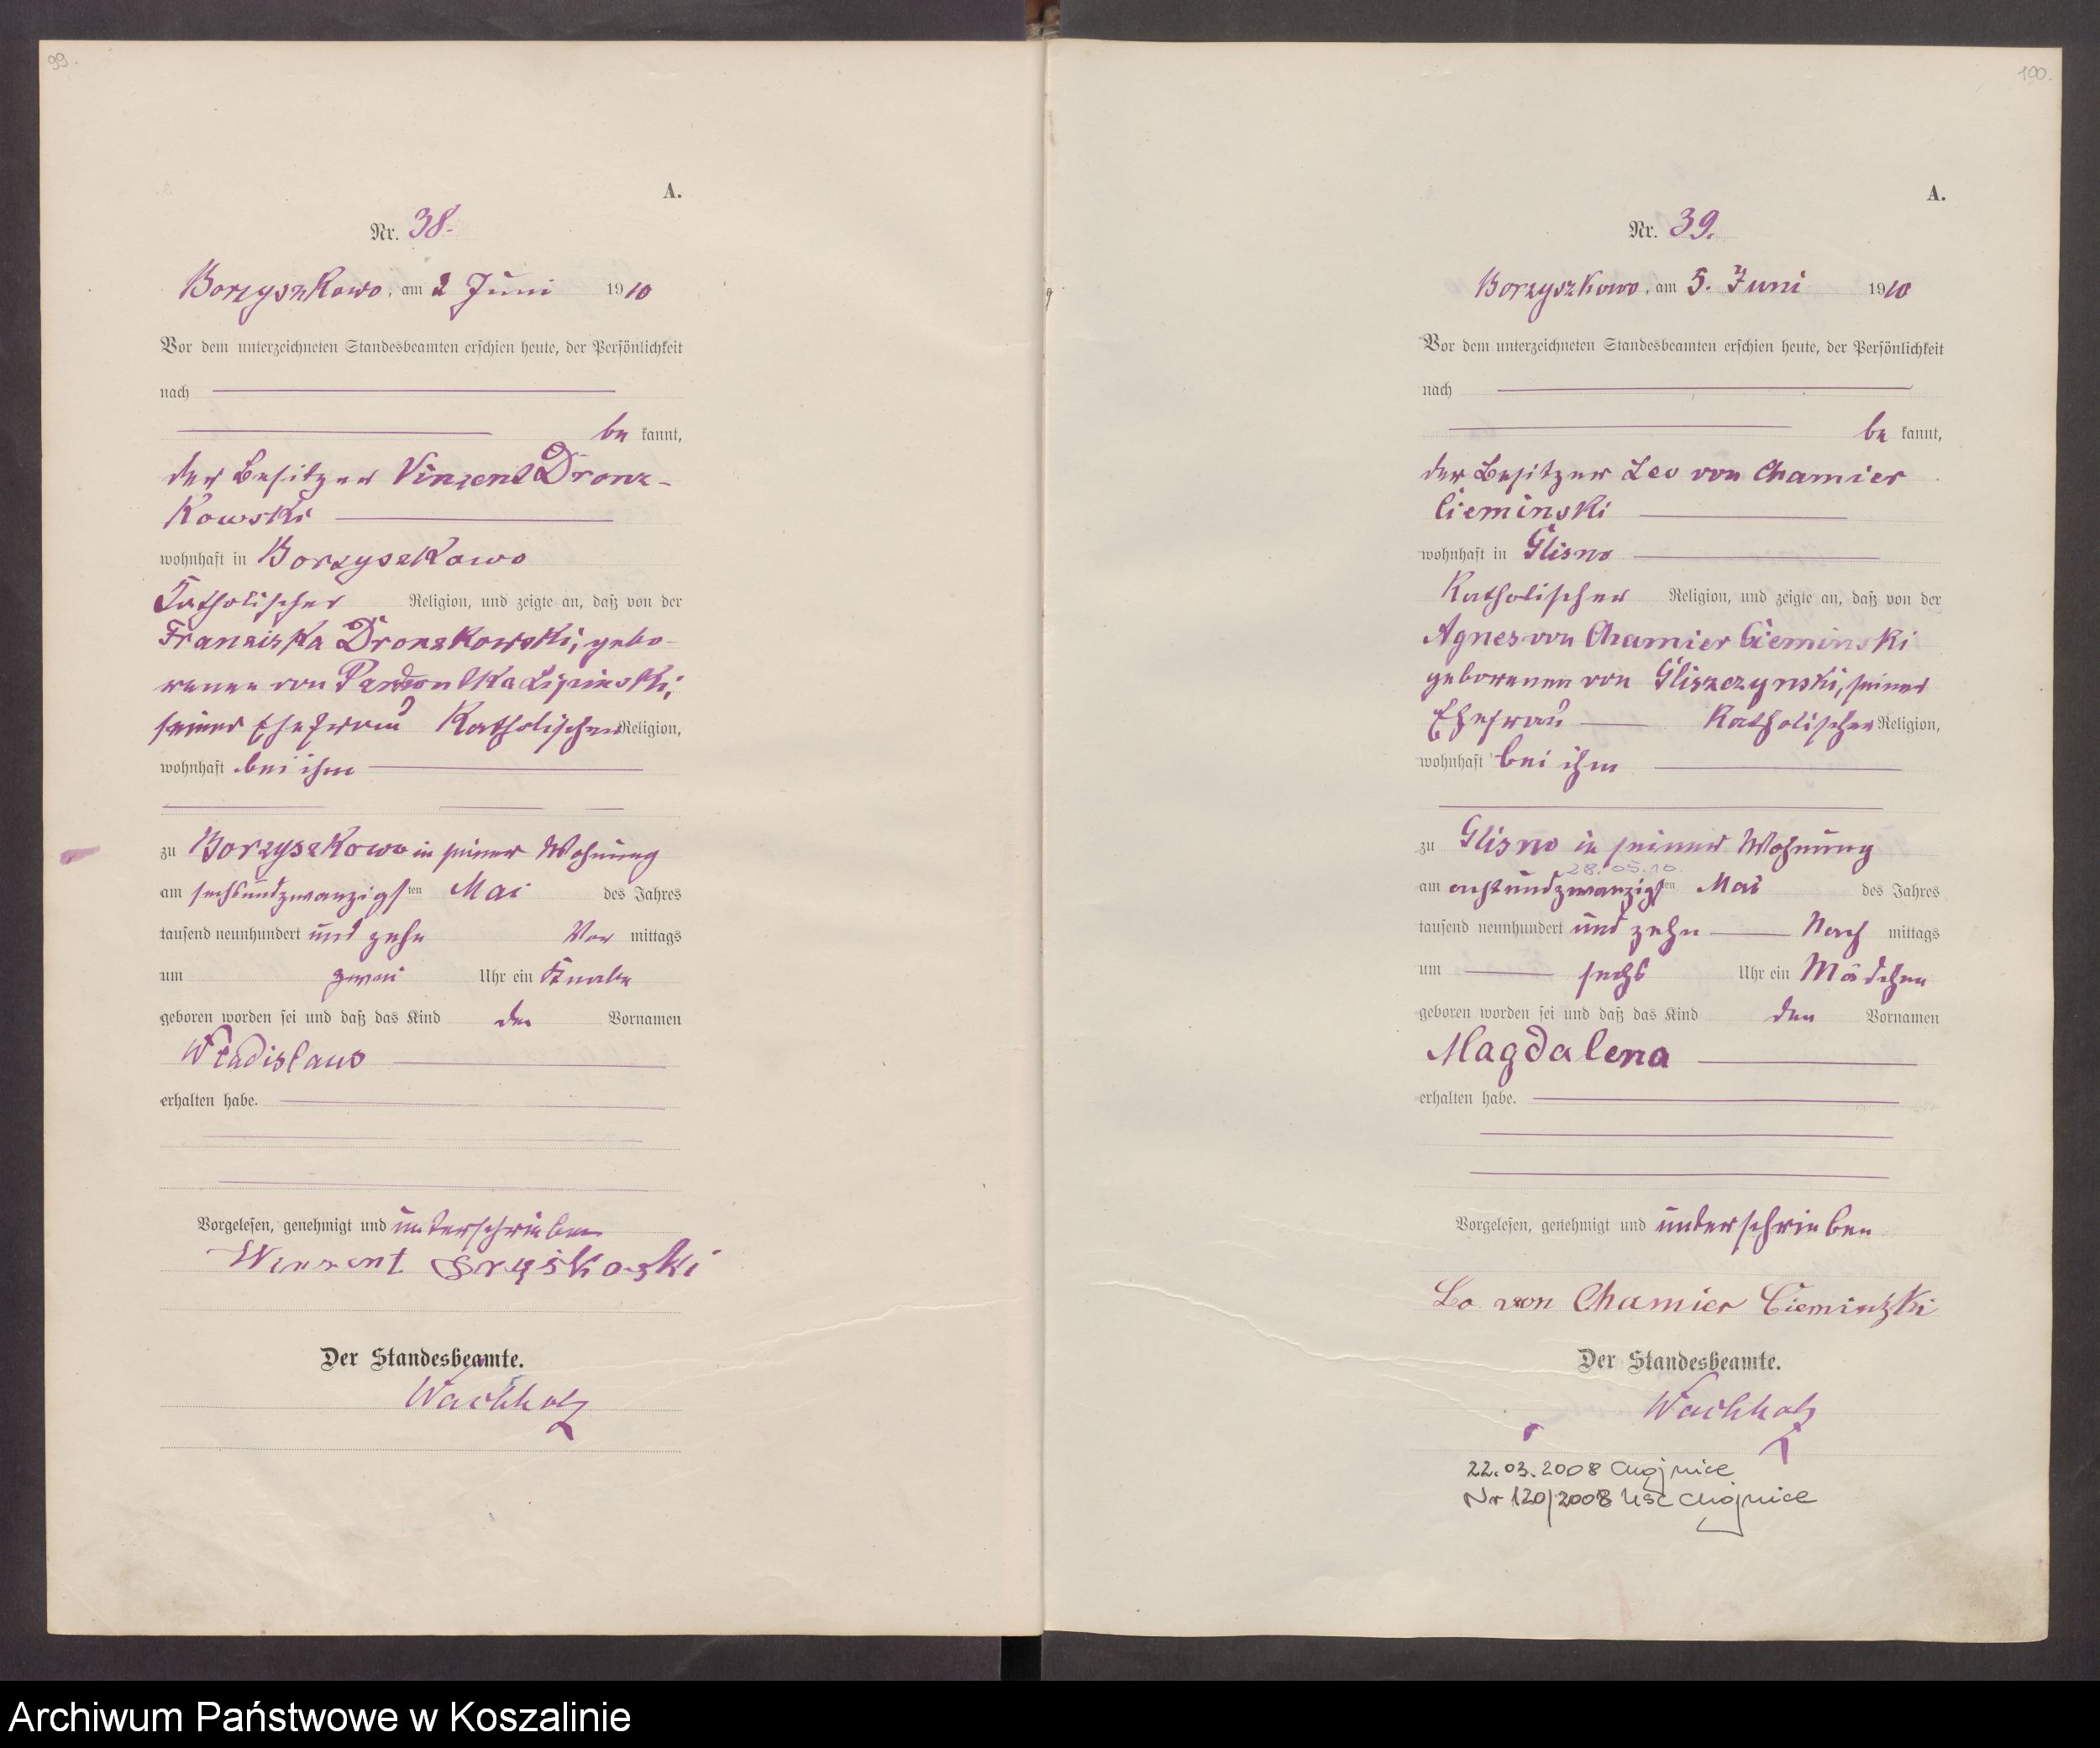 99.
A.
Nr. 38.
Borzyszkowo, am 2 Juni 1910
Vor dem unterzeichneten Standesbeamten erschien heute, der Persönlichkeit
nach
be kannt,
der Besitzer Vinzent Dronz-
kowski
wohnhaft in Borzyszkowo
Katholischer Religion, und zeigte an, daß von der
Franziska Dronzkowski, gebo-
renen von Lipinski,
seiner Ehefrau Katholischer Religion,
wohnhaft bei ihm
zu Borzyszkowo in seiner Wohnung
am sechsundzwanzigsten Mai des Jahres
tausend neunhundert und zehn Vor mittags
um zwei Uhr ein Knabe
geboren worden sei und daß das Kind den Vornamen
Wladislaus
erhalten habe.
Vorgelesen, genehmigt und unterschrieben
Der Standesbeamte.
Wachholz
100.
A.
Nr. 39.
Borzyszkowo, am 5. Juni 1910
Vor dem unterzeichneten Standesbeamten erschien heute, der Persönlichkeit
nach
be kannt,
der Besitzer Leo von Chamier
Cieminski
wohnhaft in Glisno
Katholischer Religion, und zeigte an, daß von der
Agnes von Chamier Cieminski
geborenen von Gliszczynski, seiner
Ehefrau Katholischer Religion,
wohnhaft bei ihm
zu Glisno in seiner Wohnung
28.05.10.
am achtundzwanzigsten Mai des Jahres
tausend neunhundert und zehn Nach mittags
um sechs Uhr ein Mädchen
geboren worden sei und daß das Kind den Vornamen
Magdalena
erhalten habe.
Vorgelesen, genehmigt und unterschrieben
Leo von Chamier Cieminzki
Der Standesbeamte.
Wachholz
22.03.2008 Chojnice
Nr 120/2008 USC Chojnice
Archiwum Państwowe w Koszalinie